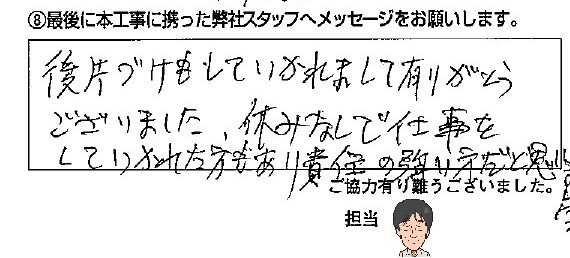 ⑧最後に本工事に携った弊社スタッフへメッセージをお願いします。
後片づけもしていかれまして有りがとう
ございました、休みなしで仕事を
していかれた方があり責任の強い方だと思い
ました
ご協力有り難うございました。
担当